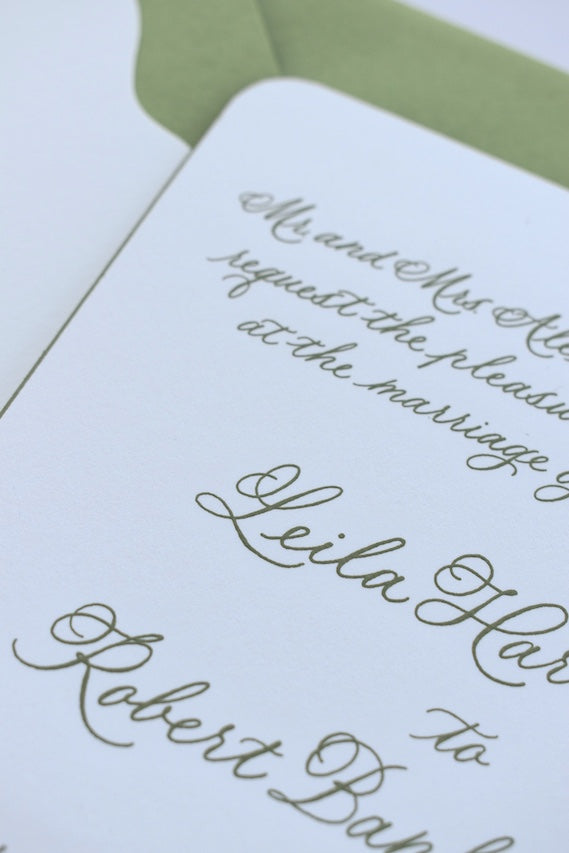 Mr. and Mrs. Ale
request the pleasu
at the marriage
Leila Har
to
Robert Ban